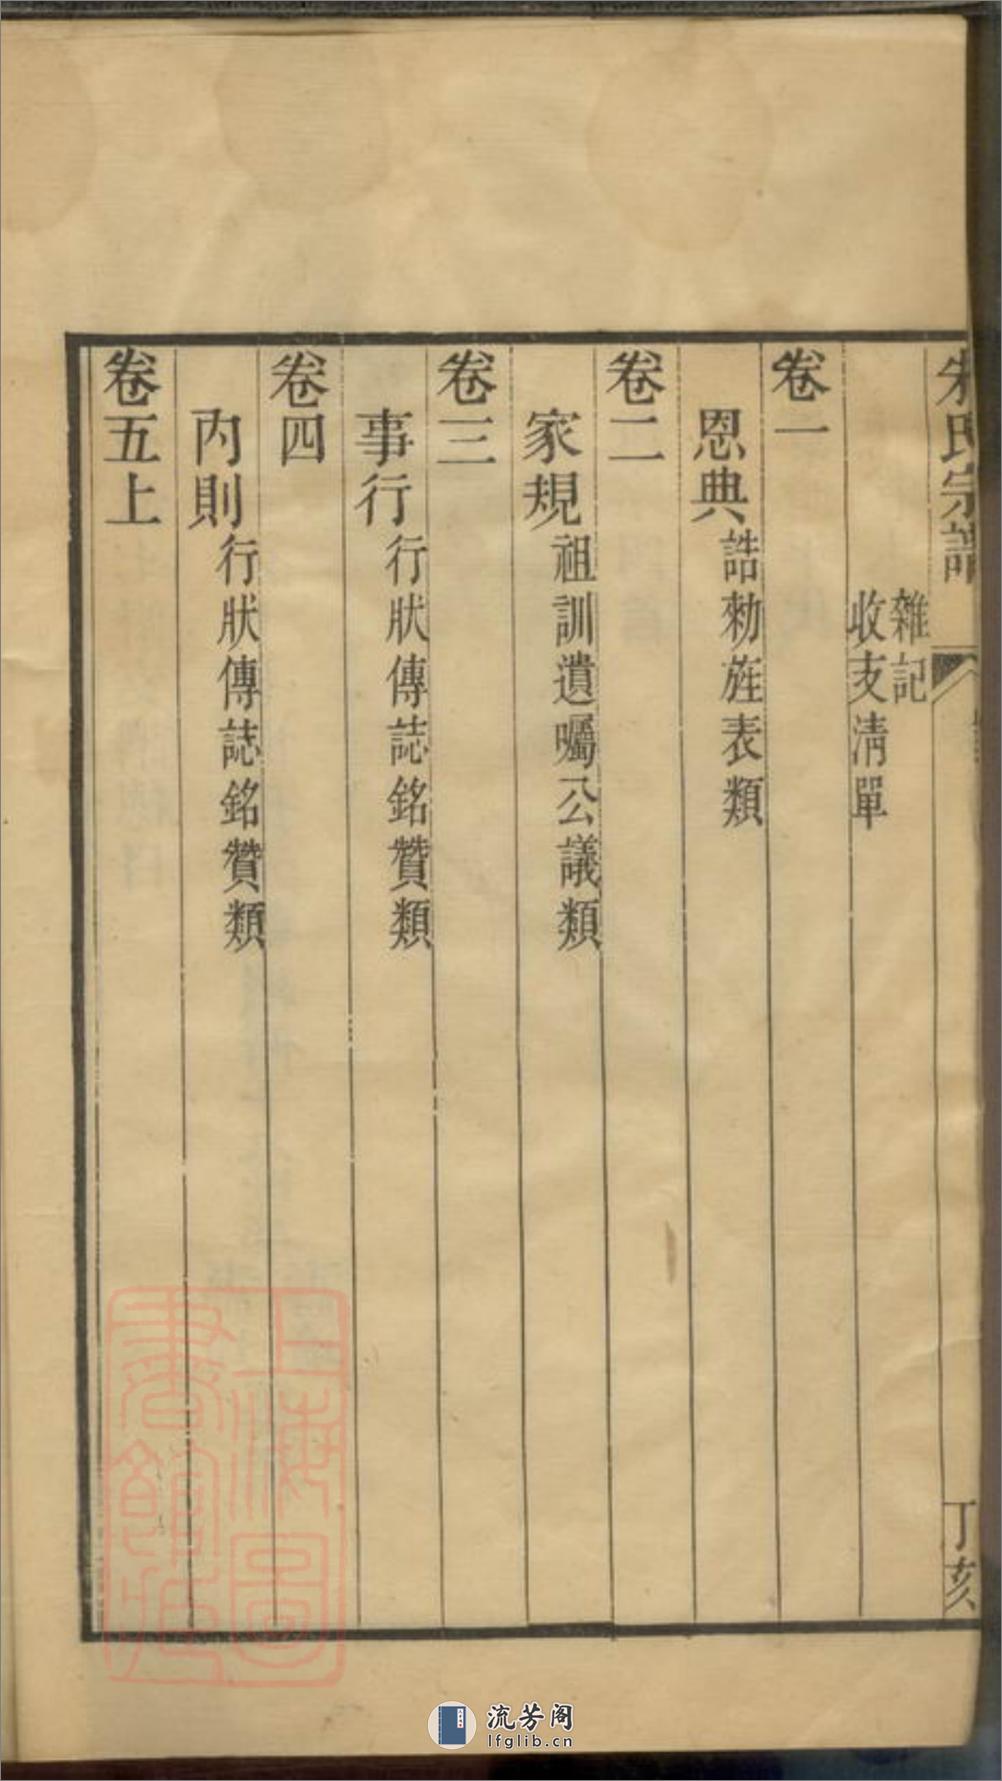 朱氏宗譜
丁亥
雜記
收支清單
卷一
恩典 誥勅旌表類
卷二
家規 祖訓遺囑公議類
卷三
事行 行狀傳誌銘贊類
卷四
內則 行狀傳誌銘贊類
卷五上
上海圖書館藏
流芳阁
lfglib.cn